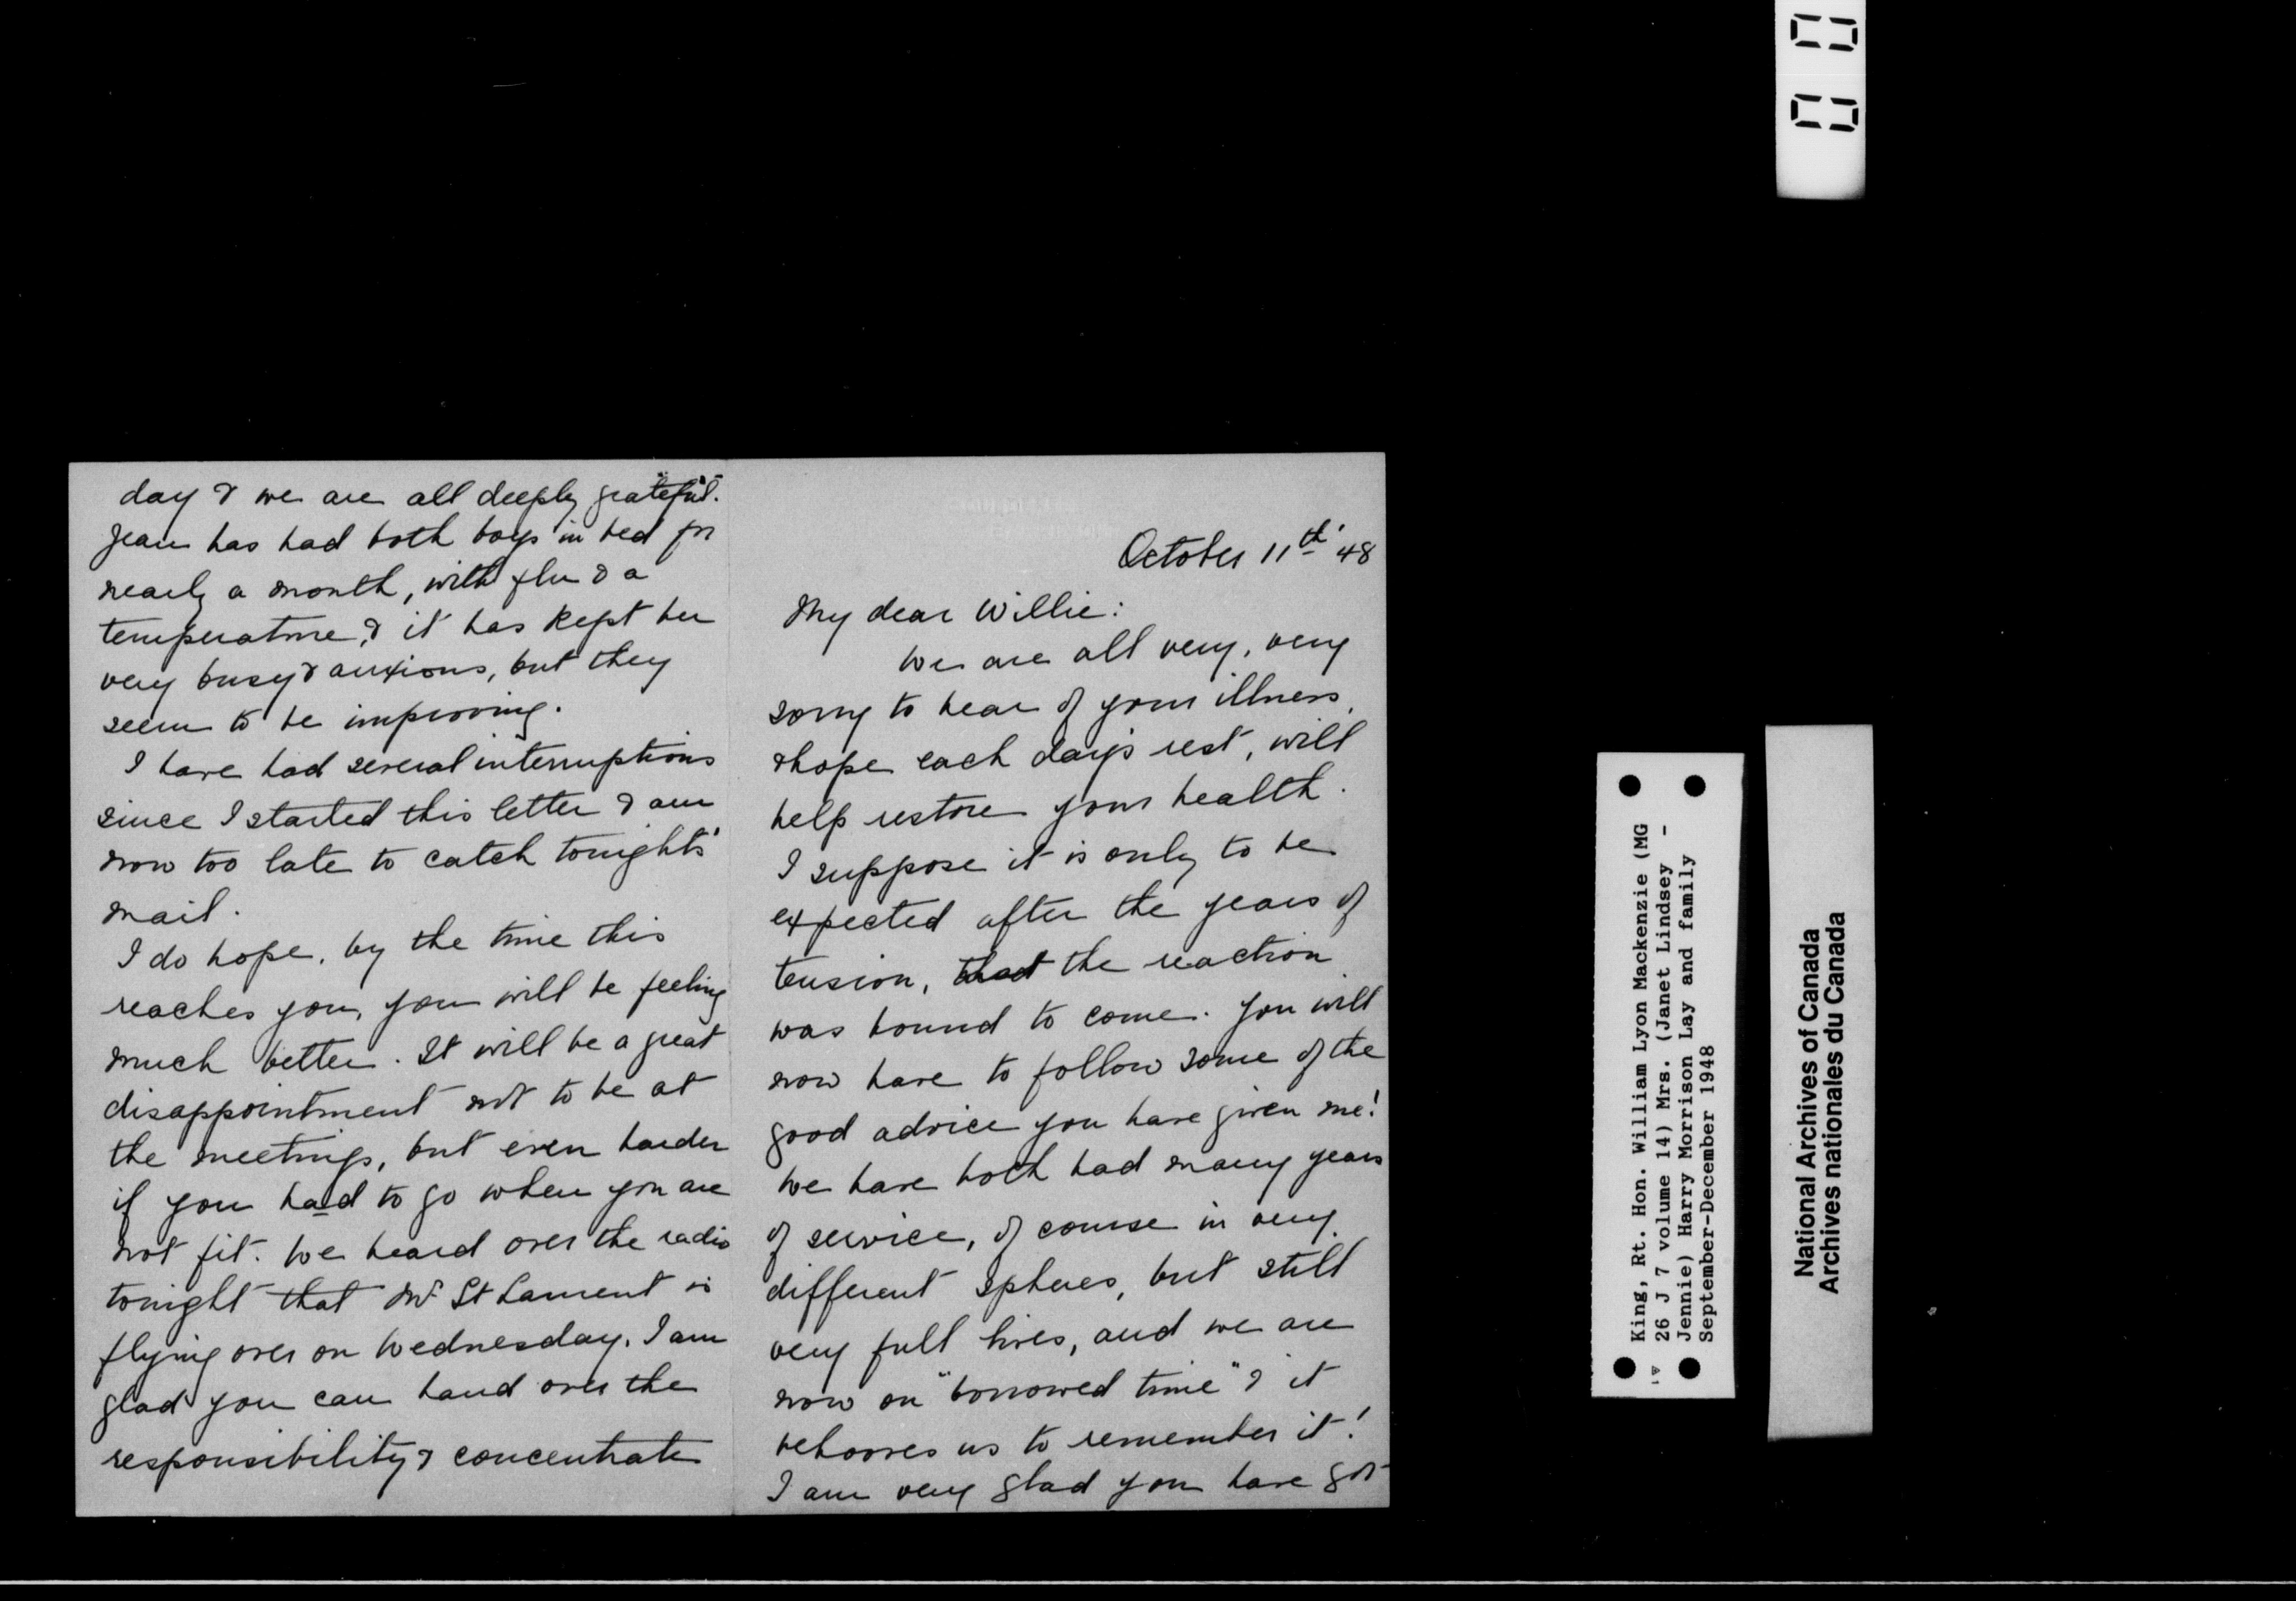 October 11th '48
My dear Willie:
We are all very, very
sorry to hear of your illness,
& hope each day's rest, will
help restore your health.
I suppose it is only to be
expected after the years of
tension, that the reaction
was bound to come. You will
now have to follow some of the
good advice you have given me!
We have both had many years
of service, of course in very
different spheres, but still
very full lives, and we are
now on "borrowed time" & it
behooves us to remember it!
I am very glad you have got
day & we are all deeply grateful.
Jean has had both boys in bed for
nearly a month, with flu & a
temperature, & it has kept her
very busy & anxious, but they
seem to be improving.
I have had several interruptions
since I started this letter & am
now too late to catch tonights'
mail.
I do hope, by the time this
reaches you, you will be feeling
much better. It will be a great
disappointment not to be at
the meetings, but even harder
if you had to go when you are
not fit. We heard over the radio
tonight that Mr St Laurent is
flying over on Wednesday. I am
glad you can hand over the
responsibility & concentrate
King, Rt. Hon. William Lyon Mackenzie (MG
26 J 7 volume 14) Mrs. (Janet Lindsey -
Jennie) Harry Morrison Lay and family
September-December 1948
National Archives of Canada
Archives nationales du Canada